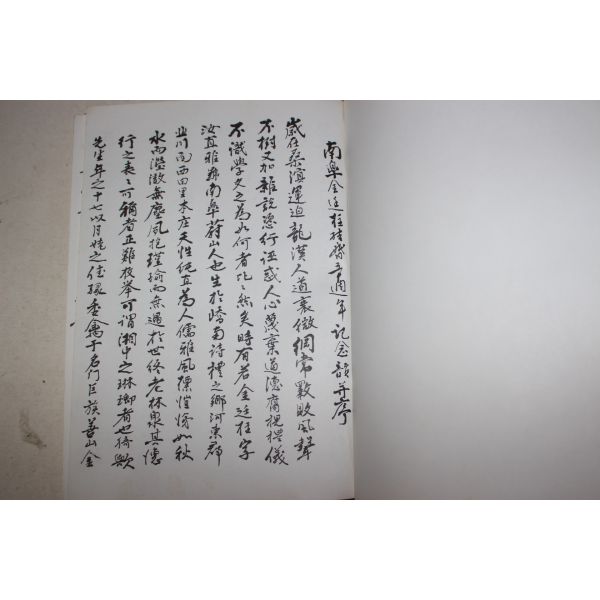 南皐金廷柱結褵五週年記念韻并序
歲在桑濱運迫龍漢人道衰微綱常斁敗風聲
不樹又加雜說恣行誣惑人心蔑棄道德腐視禮儀
不識學文之為如何者比比然矣時有若金廷柱字
汝直雅號南皐蔚山人也生於嶠南詩禮之鄉河東郡
川面西田里本庄天性純直為人儒雅風標愷悌如秋
水而瀅澈無塵風抱瑾瑜而無過於世終老林泉其德
行之表表可稱者正難枚舉可謂湘中之琳瑯者也猗歟
先生年之十七以月姥之佳緣委禽于名門巨族善山金